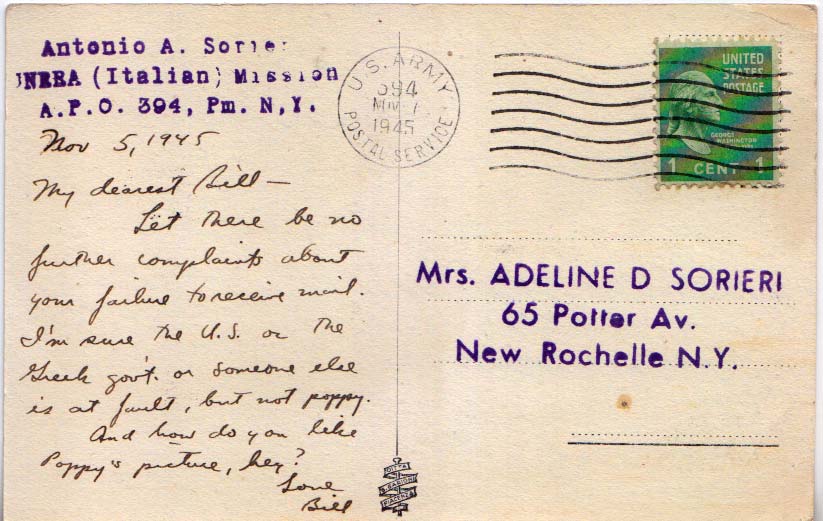 Antonio A. Sorier
UNRRA (Italian) Mission
A.P.O. 394, Pm. N.Y.
Nov 5, 1945
My dearest Bill —
Let there be no
further complaints about
your failure to receive mail.
I'm sure the U.S. or the
Greek gov't. or someone else
is at fault, but not poppy.
And how do you like
Poppy's picture, hey?
Love
Bill
U.S. ARMY
394
NOV 7
1945
POSTAL SERVICE
UNITED
STATES
POSTAGE
GEORGE
WASHINGTON
1 CENT 1
Mrs. ADELINE D SORIERI
65 Potter Av.
New Rochelle N.Y.